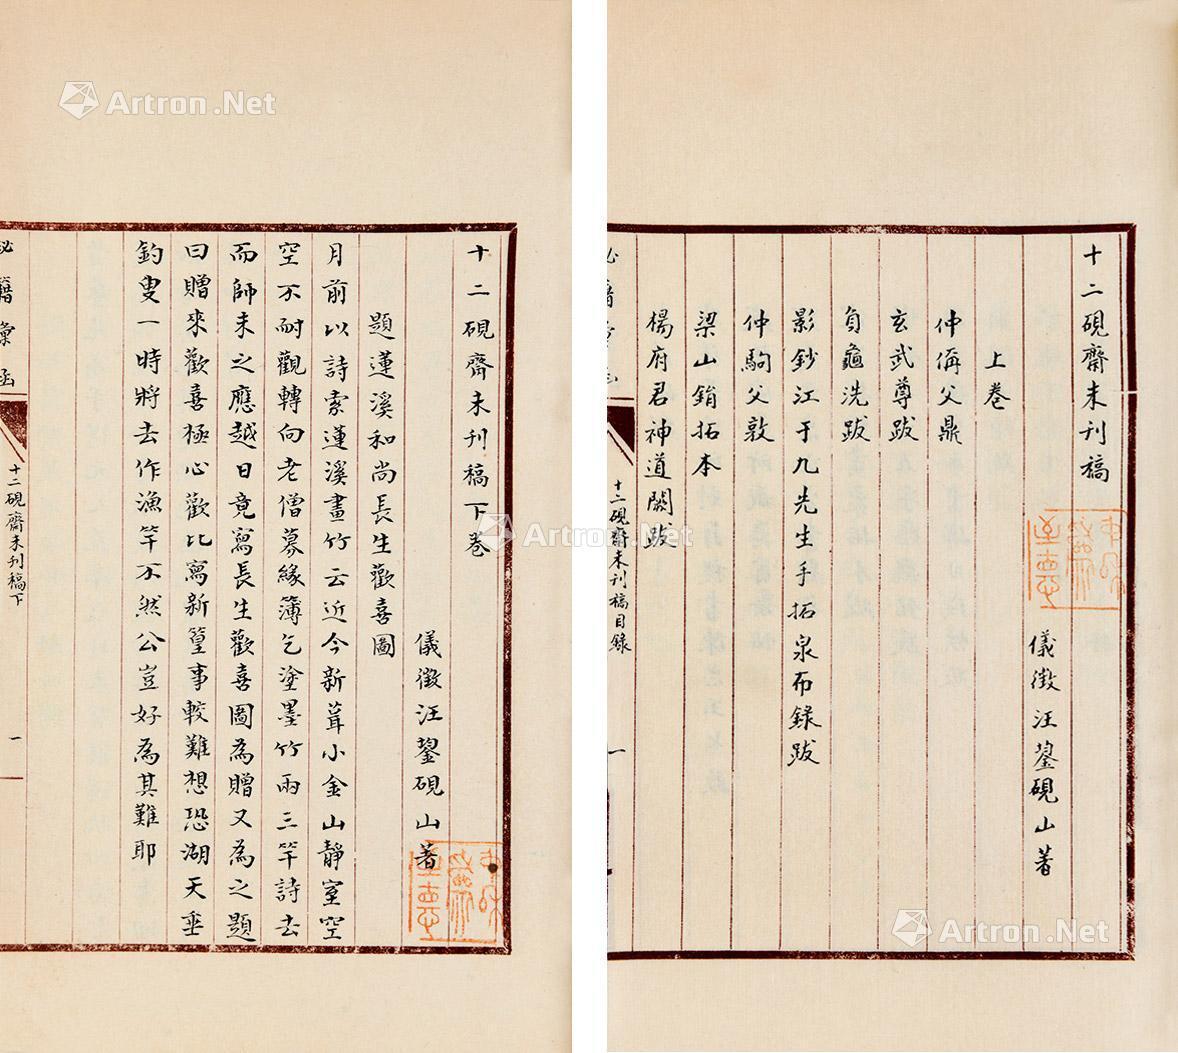 十二硯齋未刊稿
儀徴汪鋆硯山著
上卷
仲偁父鼎
玄武尊跋
負龜洗跋
影鈔江于九先生手拓泉布錄跋
仲駒父敦
梁山鋗拓本
楊府君神道闕跋
十二硯齋未刊稿目録
一
十二硯齋未刊稿下卷
儀徴汪鋆硯山著
題蓮溪和尚長生歡喜圖
月前以詩索蓮溪畫竹云近今新葺小金山靜室空
空不耐觀轉向老僧募緣簿乞塗墨竹兩三竿詩去
而師未之應越日竟寫長生歡喜圖為贈又為之題
曰贈來歡喜極心歡比寫新篁事較難想恐湖天垂
釣叟一時將去作漁竿不然公豈好為其難耶
秘籍彙函
十二硯齋未刊稿下
一
Artron.Net
Artron.Net
Artron.Net
Artron.Net